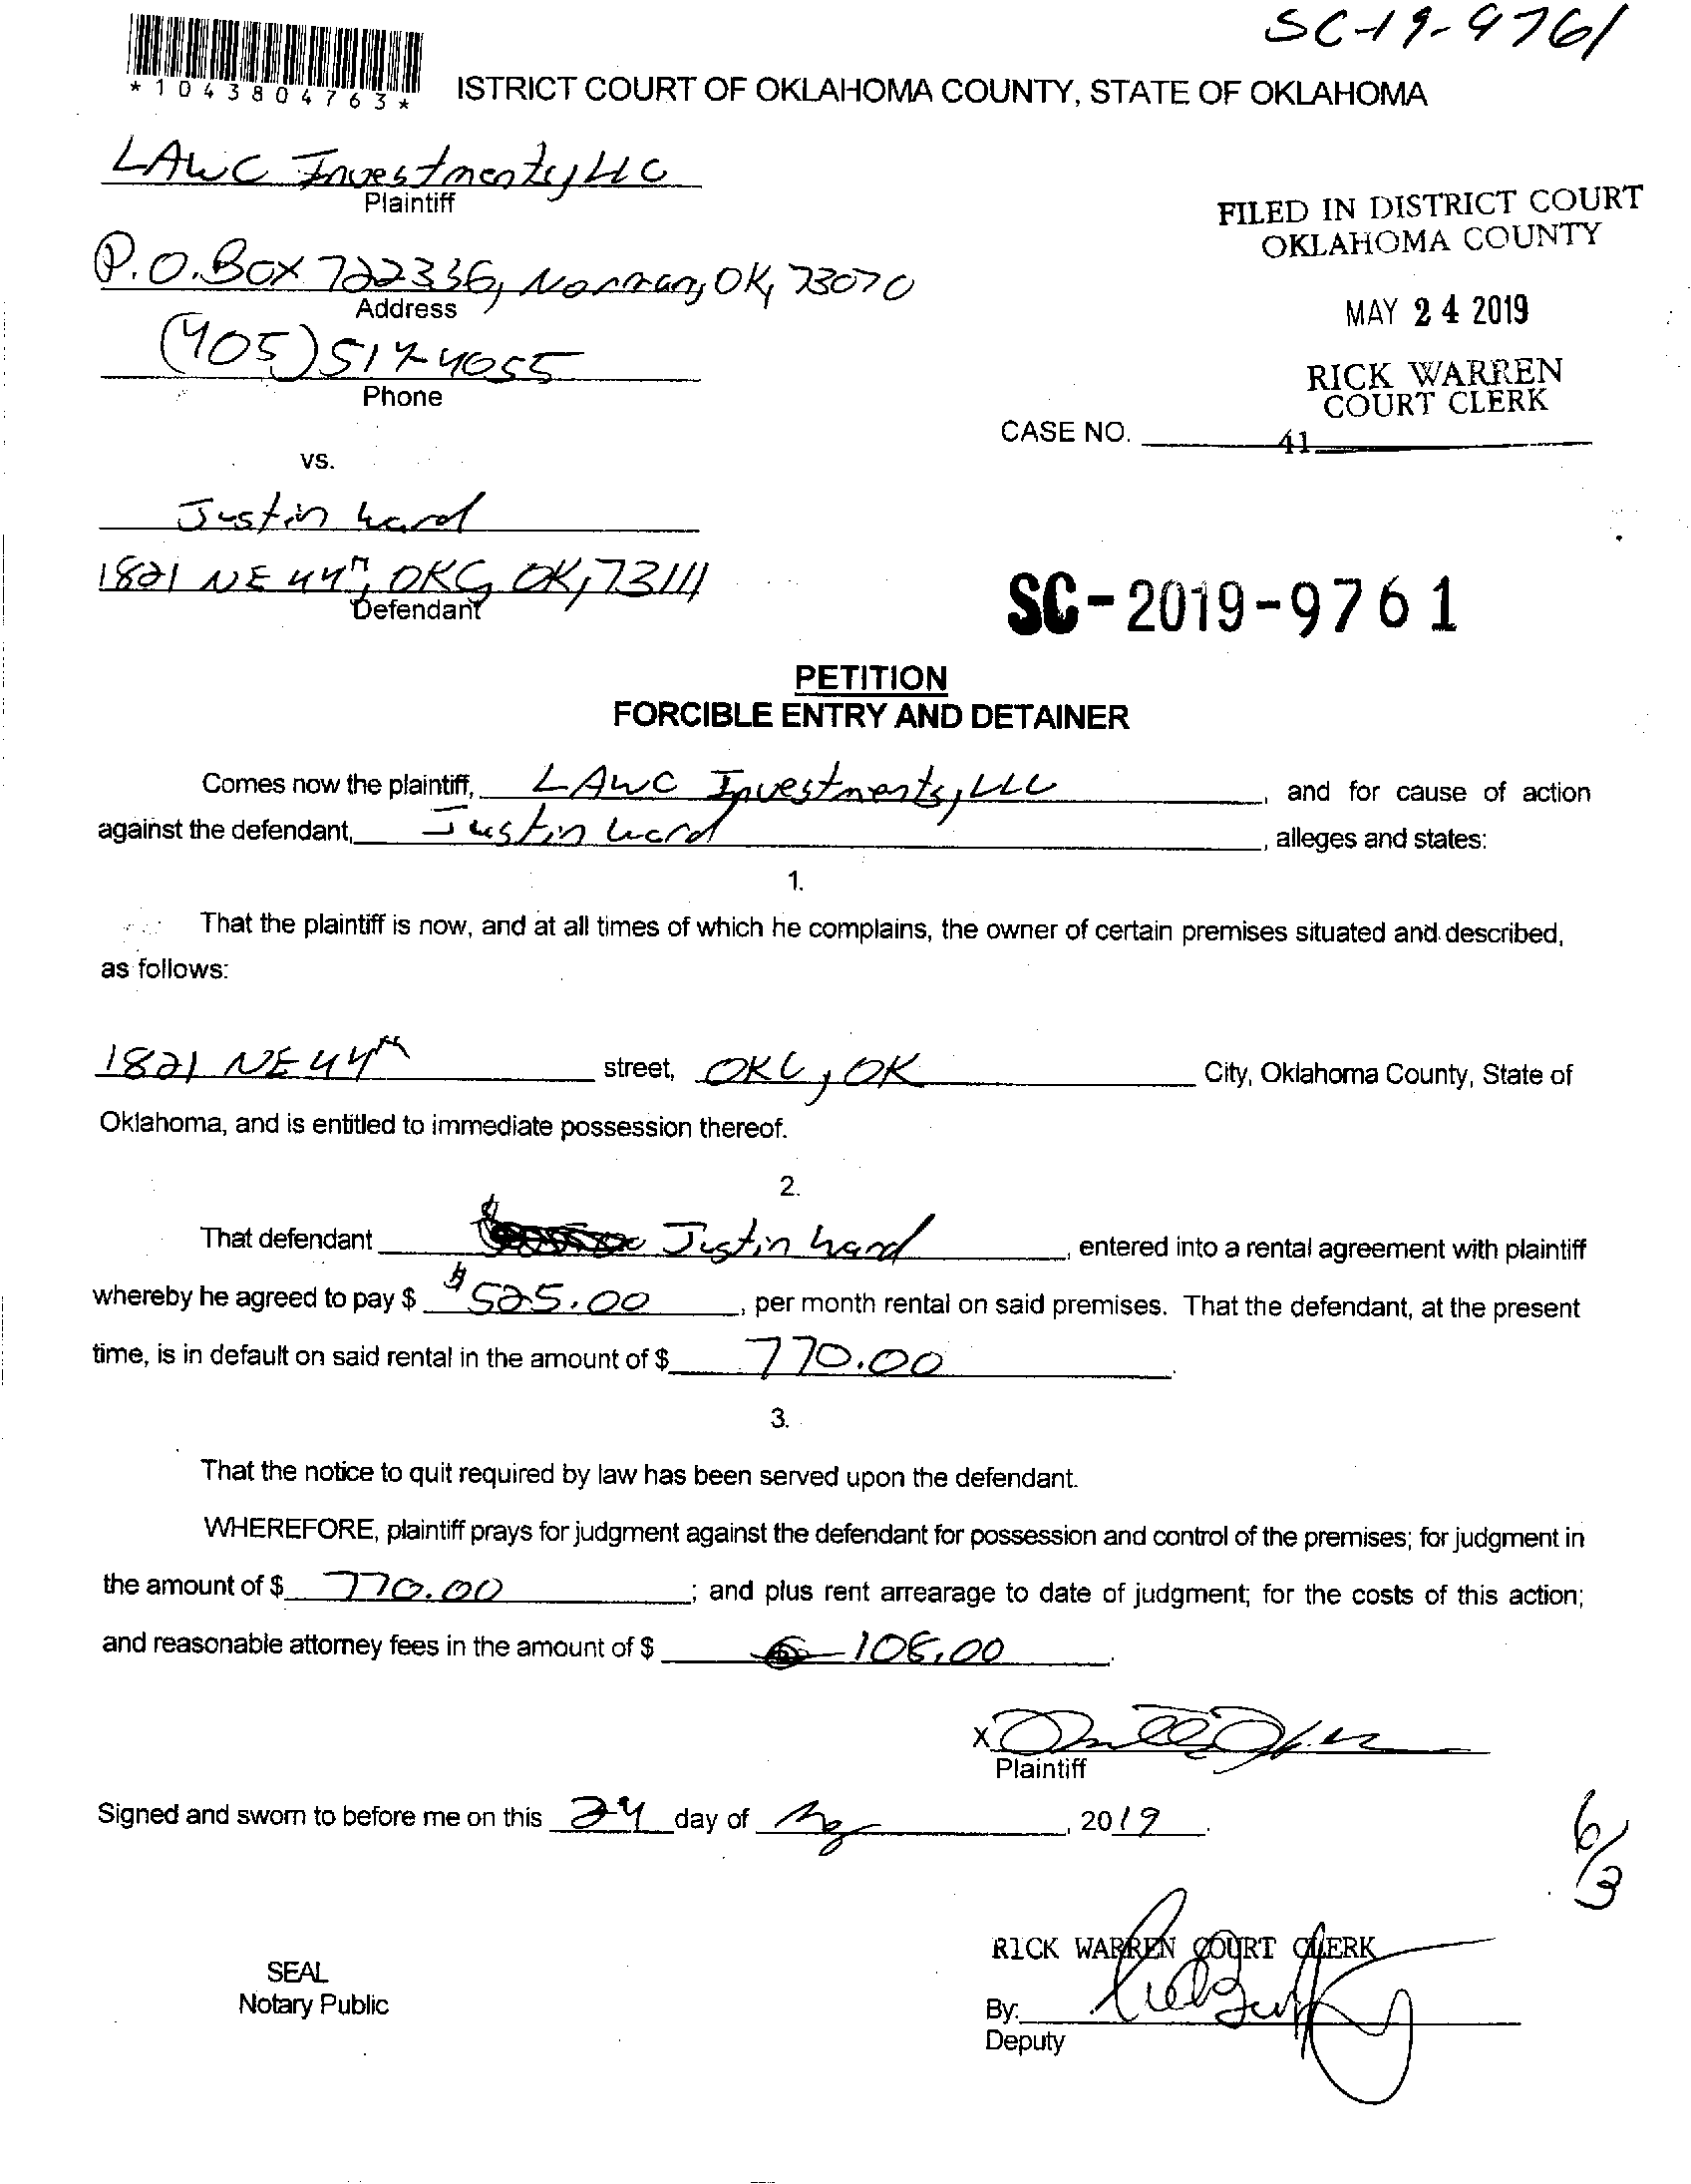 SC-19-9761
*1043804763*
ISTRICT COURT OF OKLAHOMA COUNTY, STATE OF OKLAHOMA
LAWC Investments, LLC
Plaintiff
FILED IN DISTRICT COURT
OKLAHOMA COUNTY
P.O. Box 722336, Norman, OK, 73070
Address
MAY 24 2019
(405) 517-4055
Phone
RICK WARREN
COURT CLERK
CASE NO. 41
vs.
Justin Ward
1821 NE 44th, OKC, OK, 73111
Defendant
SC-2019-9761
PETITION
FORCIBLE ENTRY AND DETAINER
Comes now the plaintiff, LAWC Investments, LLC, and for cause of action
against the defendant, Justin Ward, alleges and states:
1.
That the plaintiff is now, and at all times of which he complains, the owner of certain premises situated and described,
as follows:
1821 NE 44th street, OKC, OK City, Oklahoma County, State of
Oklahoma, and is entitled to immediate possession thereof.
2.
That defendant Justin Ward, entered into a rental agreement with plaintiff
whereby he agreed to pay $ $525.00, per month rental on said premises. That the defendant, at the present
time, is in default on said rental in the amount of $ 770.00.
3.
That the notice to quit required by law has been served upon the defendant.
WHEREFORE, plaintiff prays for judgment against the defendant for possession and control of the premises; for judgment in
the amount of $ 770.00; and plus rent arrearage to date of judgment; for the costs of this action;
and reasonable attorney fees in the amount of $ .
X
Plaintiff
Signed and sworn to before me on this 24 day of May, 2019.
6/3
RICK WARREN COURT CLERK
SEAL
Notary Public
By:
Deputy